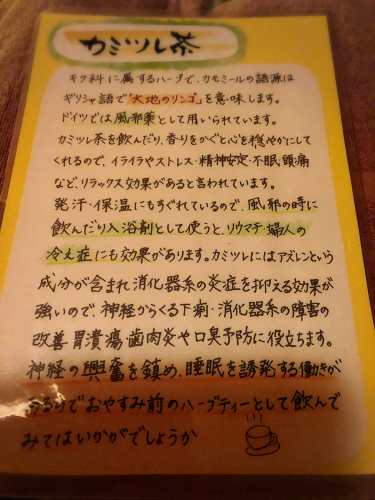 カミツレ茶
キク科に属するハーブで、カモミールの語源は
ギリシャ語で「大地のリンゴ」を意味します。
ドイツでは風邪薬として用いられています。
カミツレ茶を飲んだり、香りをかぐと心を穏やかにして
くれるので、イライラやストレス・精神安定・不眠、頭痛
など、リラックス効果があると言われています。
発汗・保温にもすぐれているので、風邪の時に
飲んだり入浴剤として使うと、リウマチ・婦人の
冷え症にも効果があります。カミツレにはアズレンという
成分が含まれ消化器系の炎症を抑える効果が
強いので、神経からくる下痢・消化器系の障害の
改善胃潰瘍歯肉炎や口臭予防に役立ちます。
神経の興奮を鎮め、睡眠を誘発する働きが
あるのでおやすみ前のハーブティーとして飲んで
みてはいかがでしょうか